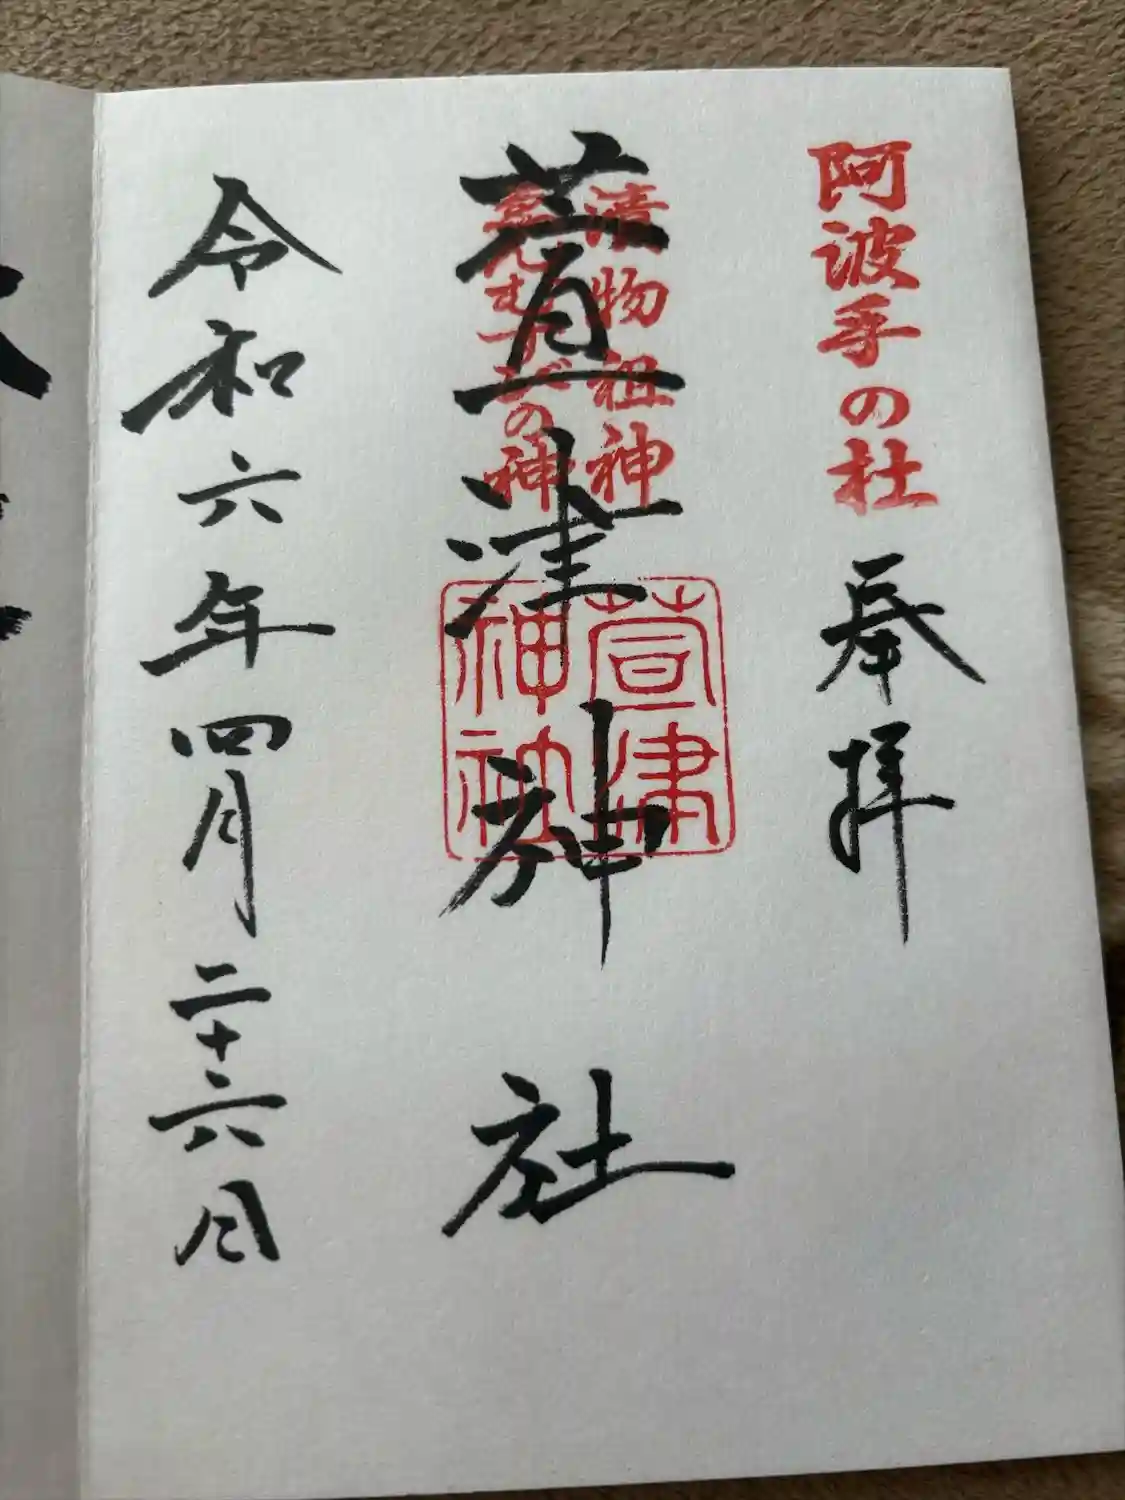 阿波手の杜 奉拝
漬物祖神
縁むすびの神
萱津神社
萱津
神社
令和六年四月二十六日